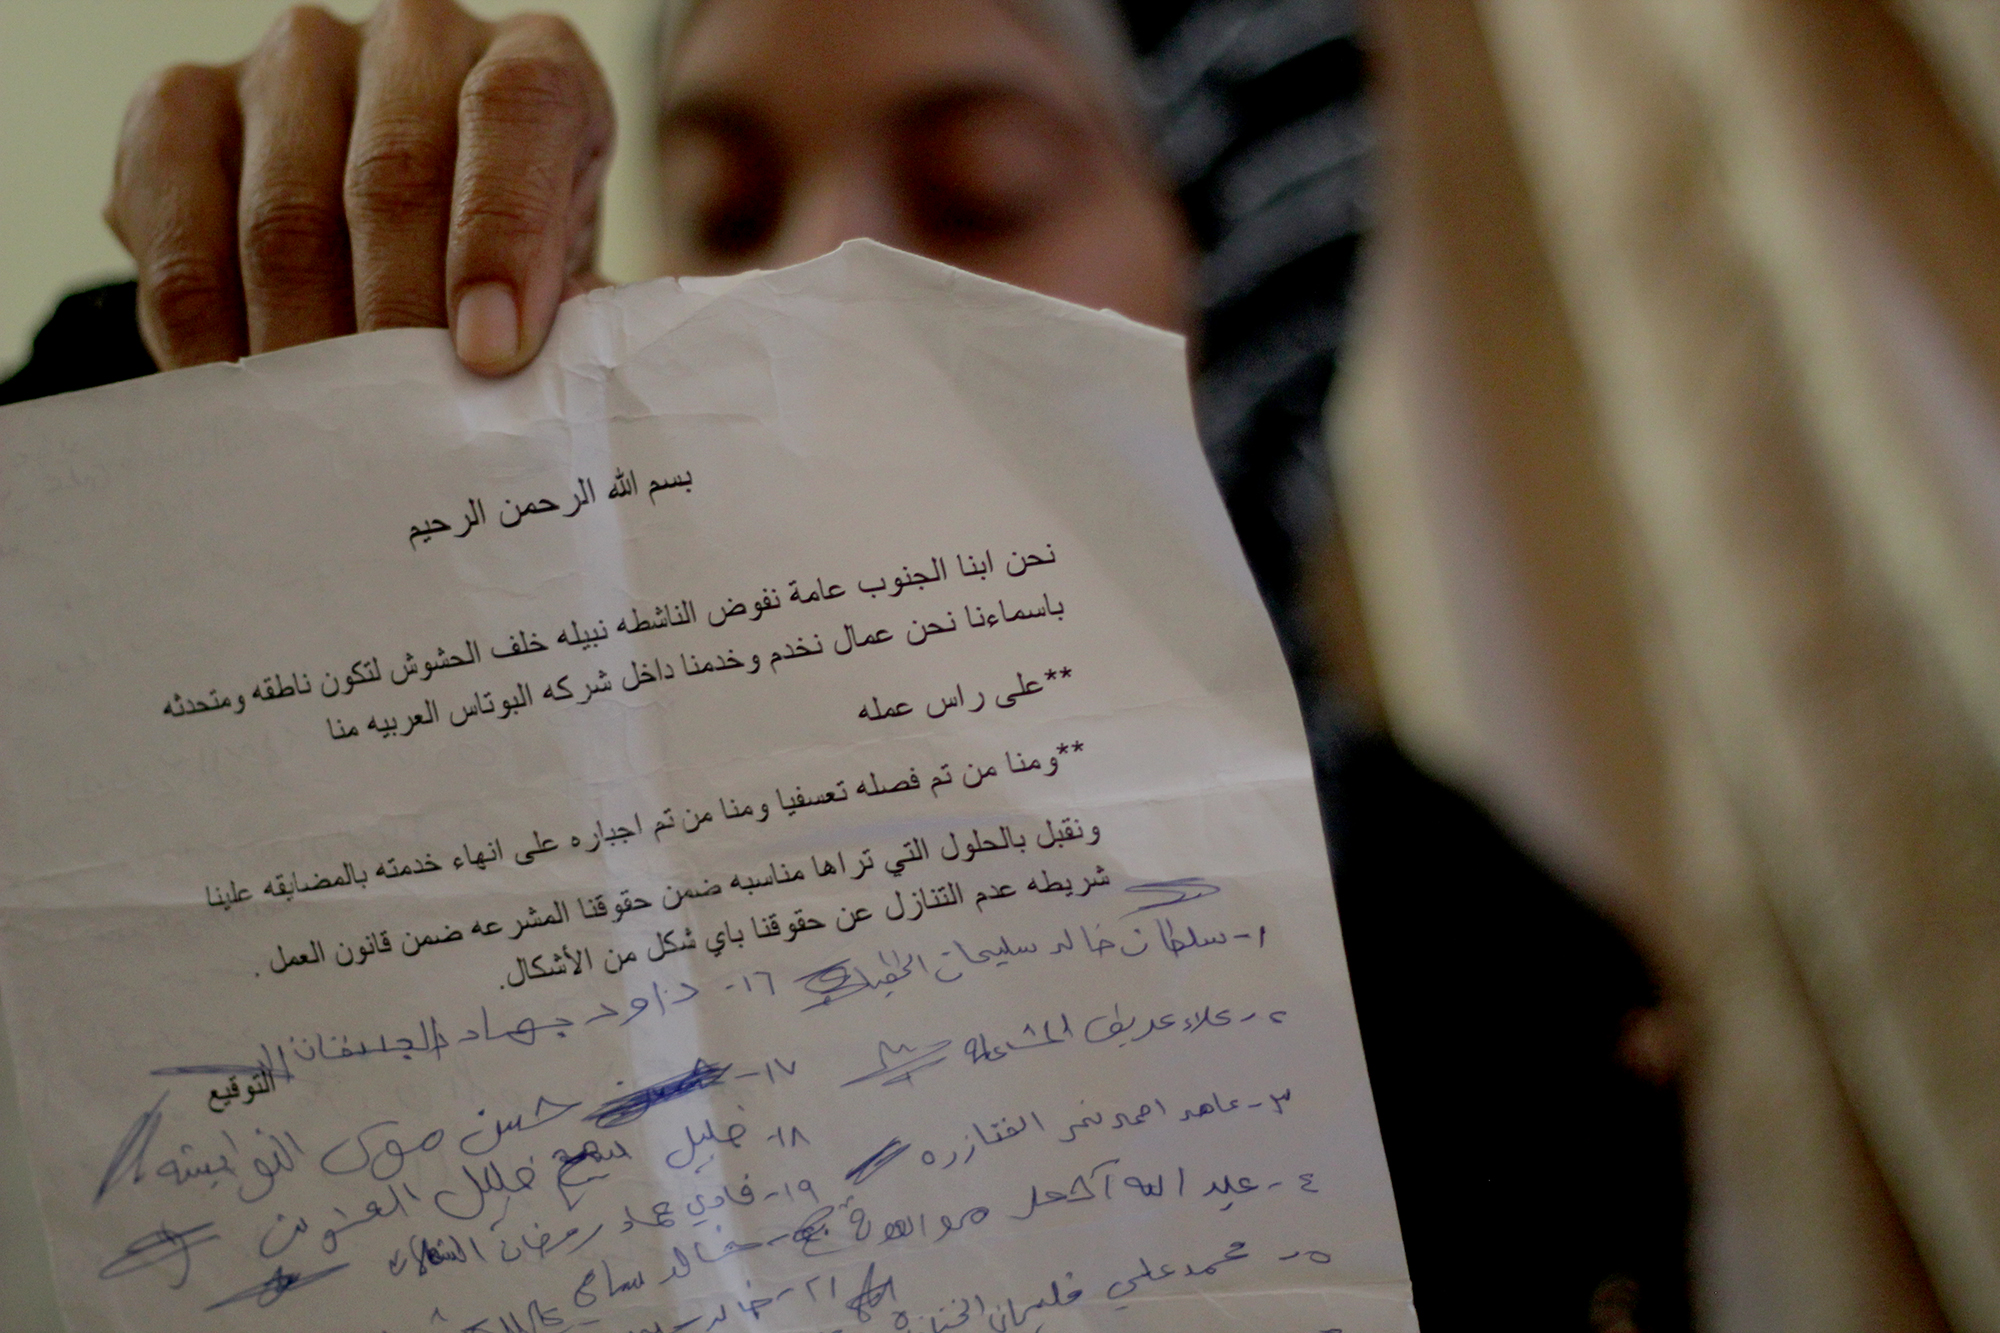 بسم الله الرحمن الرحيم
نحن ابنا الجنوب عامة نفوض الناشطه نبيله خلف الحشوش لتكون ناطقه ومتحدثه
باسماءنا نحن عمال نخدم وخدمنا داخل شركه البوتاس العربيه منا
**على راس عمله
**ومنا من تم فصله تعسفيا ومنا من تم اجباره على انهاء خدمته بالمضايقه علينا
ونقبل بالحلول التي تراها مناسبه ضمن حقوقنا المشرعه ضمن قانون العمل .
شريطه عدم التنازل عن حقوقنا باي شكل من الأشكال.
١- سلطان خالد سليمان
١٦- داود جهاد
التوقيع
٢- علاء
١٧- حسن موسى النوايشه
٣- عاهد احمد نمر الختازره
١٨- خليل
خليل
٤- عبد الله
١٩- فادي عماد رمضان
خالد سامي
٥- محمد علي
٢١- خالد